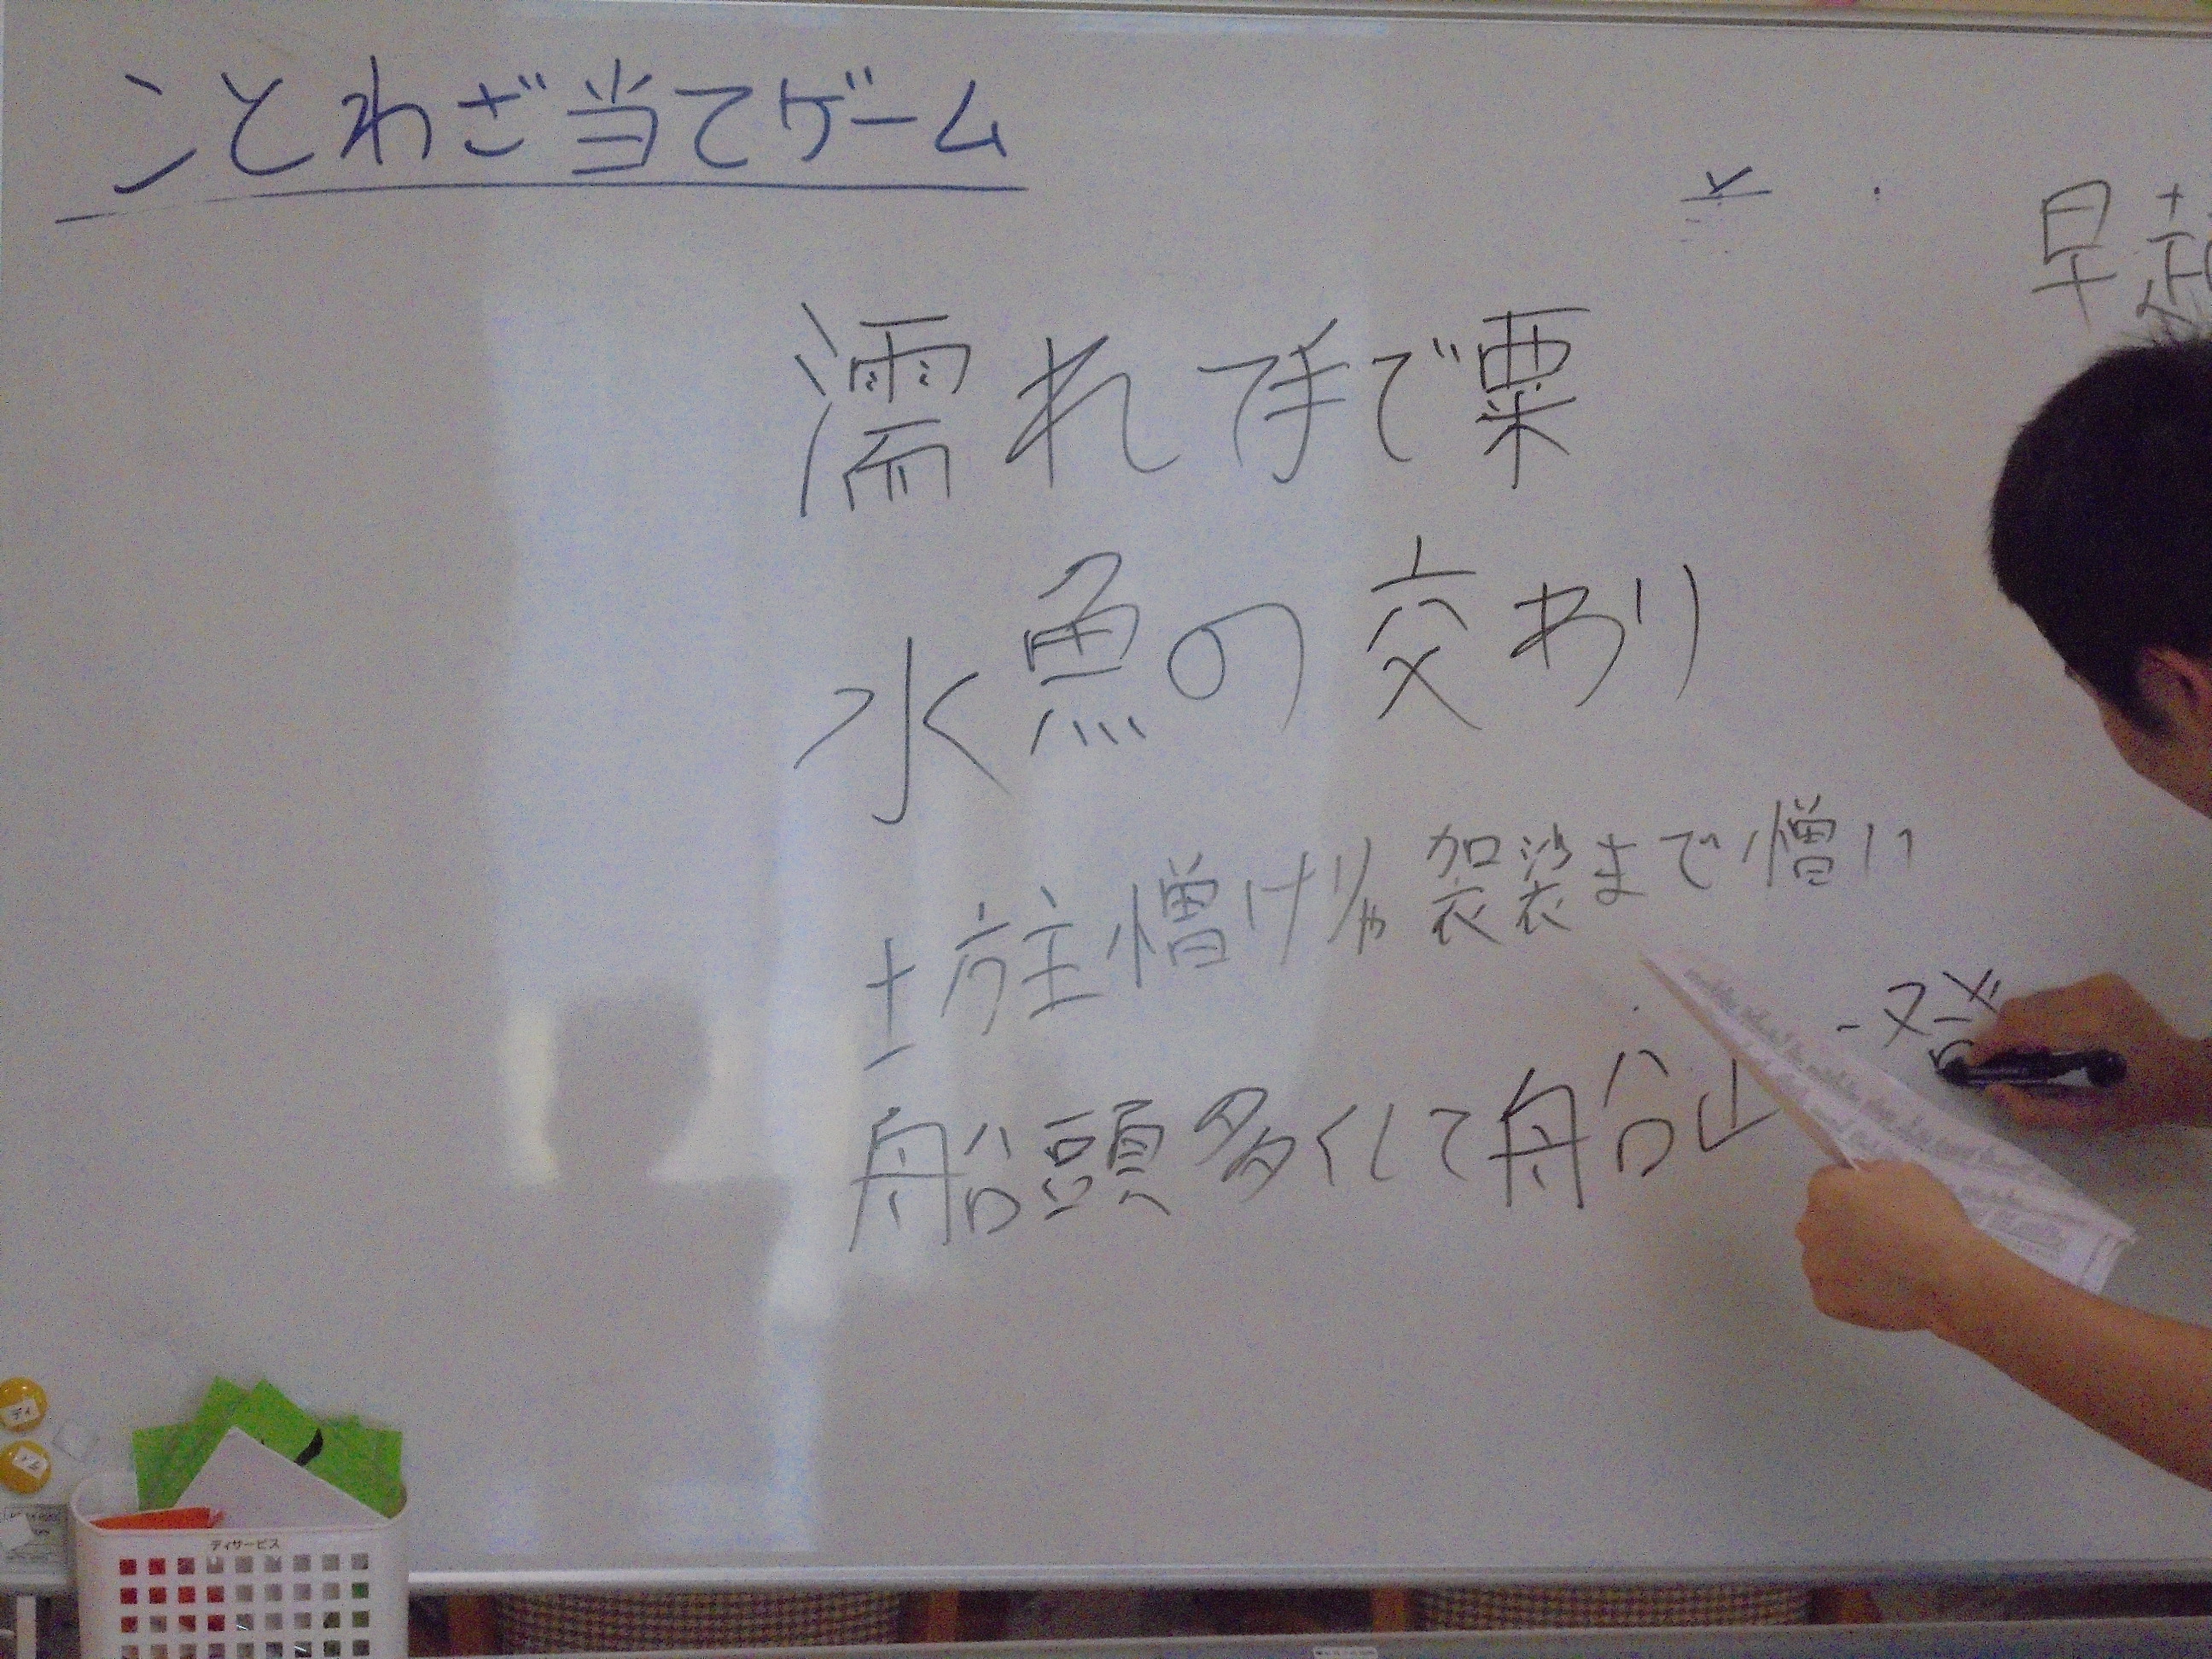 ことわざ当てゲーム
早起
濡れ手で粟
水魚の交わり
坊主憎けりゃ袈裟まで憎い
船頭多くして船山
ディサービス